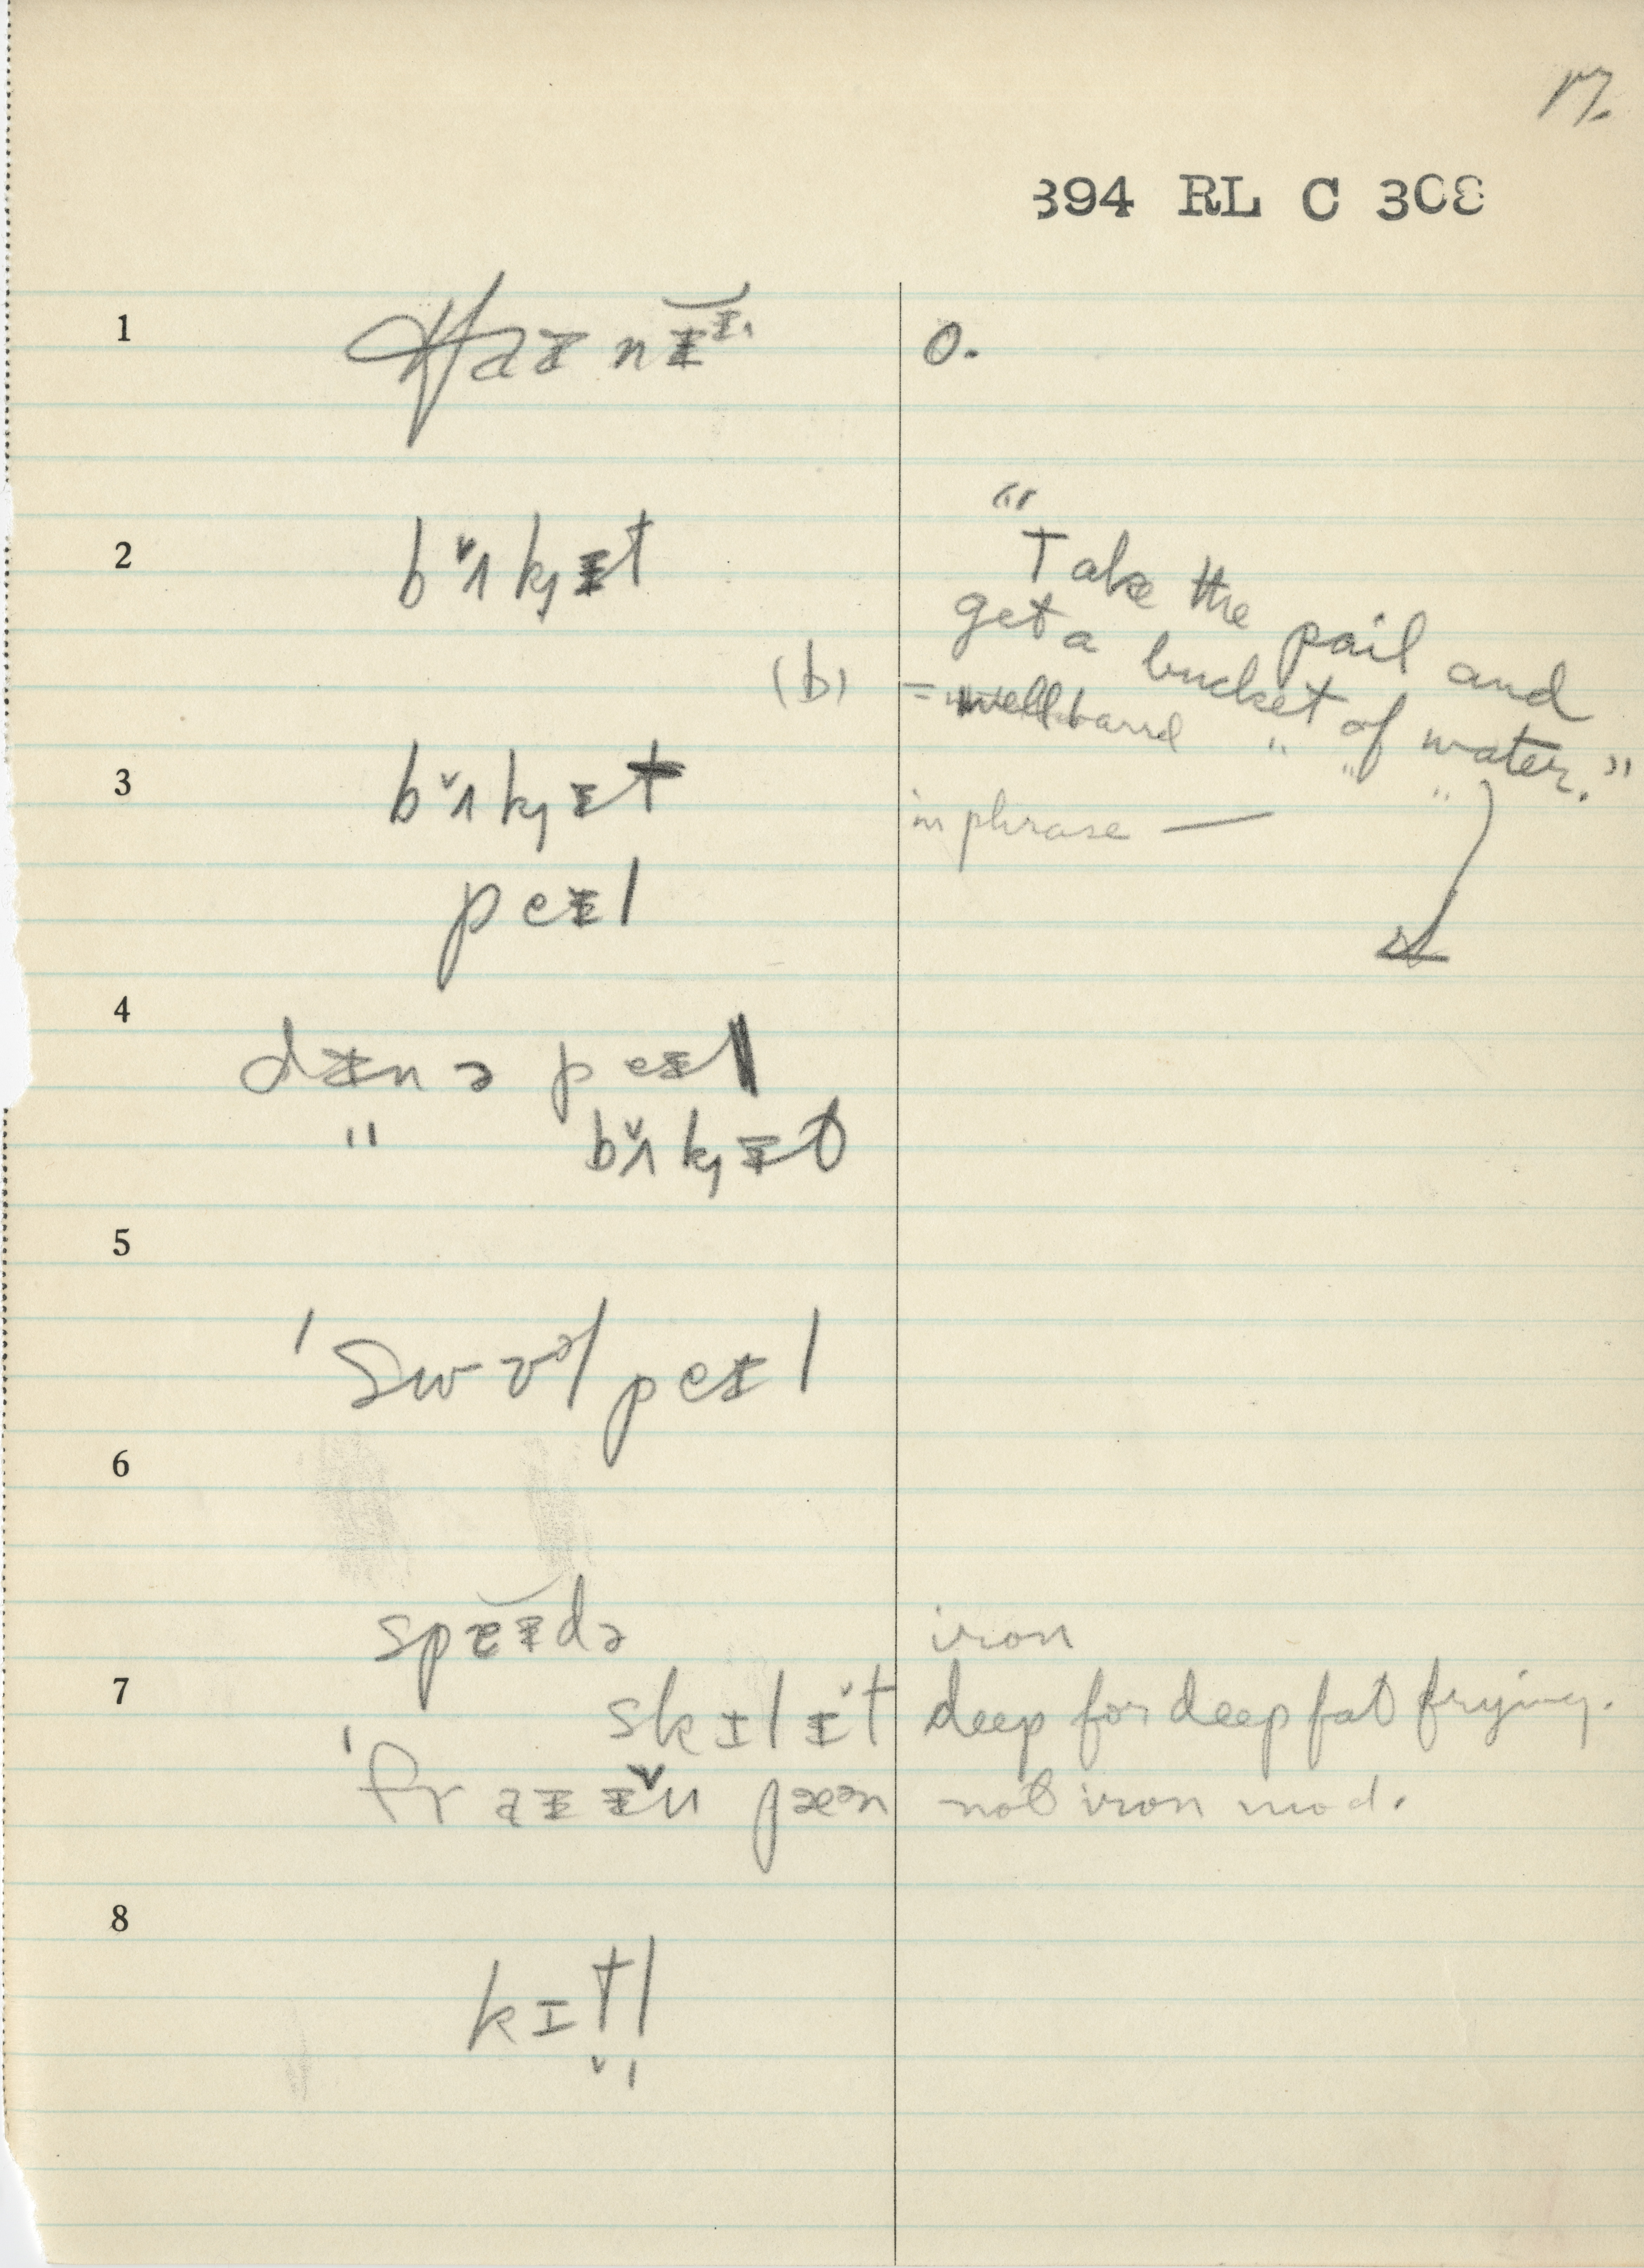 17.
394 RL C 308
1
o.
2 bʌ̌kɪt
"Take the pail and
get a bucket of water."
(b) = well
3 bʌ̌kɪt in phrase —
peɪl
4
dɪnə peɪl
" bʌ̌kɪt
5
ˈswɪəl peɪl
6
speɪdə iron
7
skɪlɪt deep for deep fat frying.
ˈfraɪɪn pæən not iron mod.
8
kɪtl